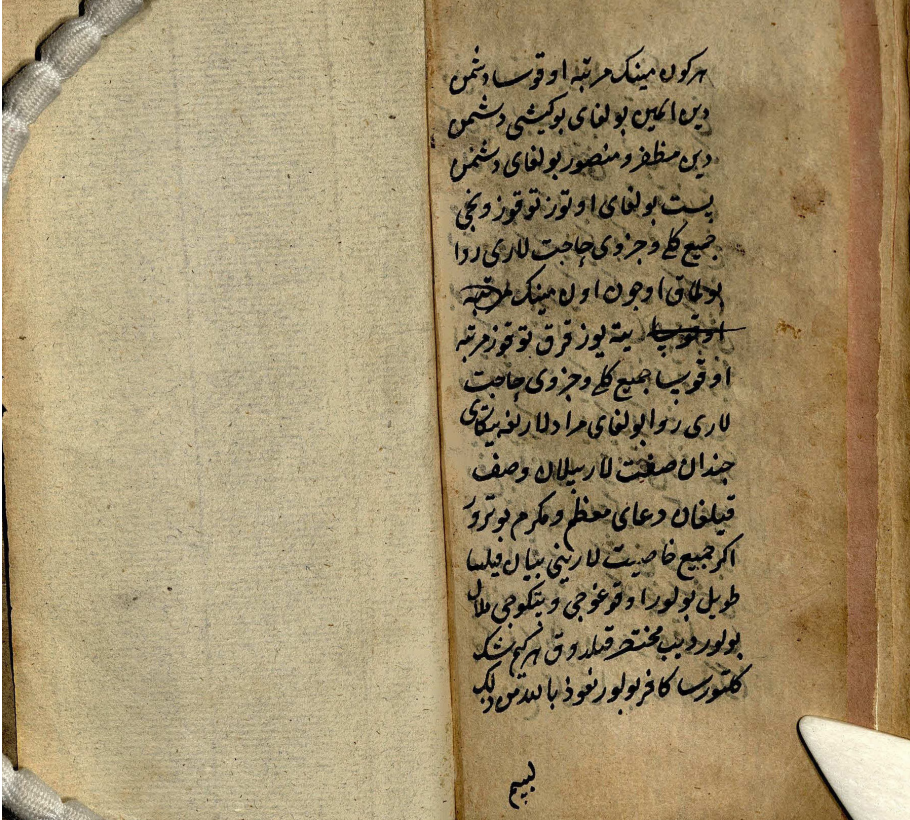 هر کون مینک مرتبه اوقوسا دشمن
دین ایمین بولغای بو کیشی دشمن
دین مظفر و منصور بولغای دشمن
پست بولغای اوتوز توقوز ونجی
جمیع کلی و جزوی حاجت لاری روا
بولماق اوجون اون مینک مرتبه
اوقوسا یته یوز قرق توقوز مرتبه
اوقوسا جمیع کلی و جزوی حاجت
لاری روا بولغای مراد لارغه ییتکای
جندان صفت لار بیلان وصف
قیلغان دعای معظم و مکرم بو ترور
اکر جمیع خاصیت لارینی بیان قیلسا
طویل بولور اوقوغوجی و بتکوجی ملال
بولور دیب مختصر قیلدوق هر کیم شک
کلتورسا کافر بولور نعوذ بالله من ذلک